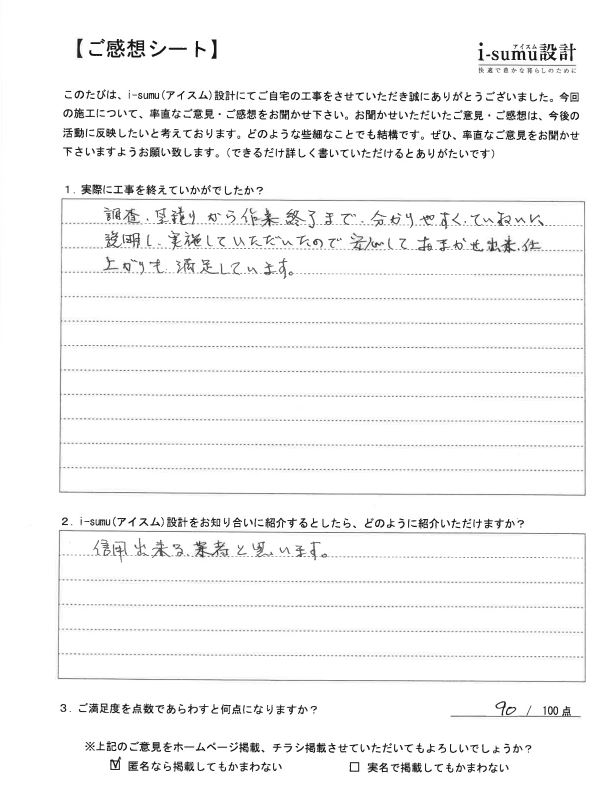 【ご感想シート】
アイスム
i-sumu設計
快適で豊かな暮らしのために
このたびは、i-sumu(アイスム)設計にてご自宅の工事をさせていただき誠にありがとうございました。今回
の施工について、率直なご意見・ご感想をお聞かせ下さい。お聞かせいただいたご意見・ご感想は、今後の
活動に反映したいと考えております。どのような些細なことでも結構です。ぜひ、率直なご意見をお聞かせ
下さいますようお願い致します。(できるだけ詳しく書いていただけるとありがたいです)
1. 実際に工事を終えていかがでしたか?
調査、見積りから作業終了まで、分かりやすく、ていねいに
説明し、実施していただいたので安心しておまかせ出来、仕
上がりも満足しています。
2. i-sumu(アイスム)設計をお知り合いに紹介するとしたら、どのように紹介いただけますか?
信用出来る業者と思います。
3. ご満足度を点数であらわすと何点になりますか?
90 / 100点
※上記のご意見をホームページ掲載、チラシ掲載させていただいてもよろしいでしょうか?
☑ 匿名なら掲載してもかまわない □ 実名で掲載してもかまわない